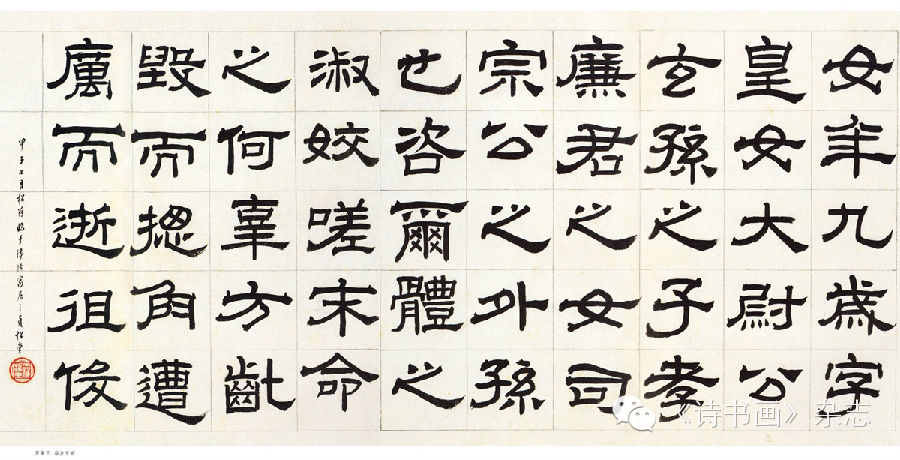 女年九歲字
皇女大尉公
玄孫之子孝
廉君之女司
宗公之外孫
也咨爾體之
淑姣嗟末命
之何辜方齔
毀而揔角遭
厲而逝徂
甲子七月松翁臨于津沽寓居之貞松堂
《诗书画》杂志